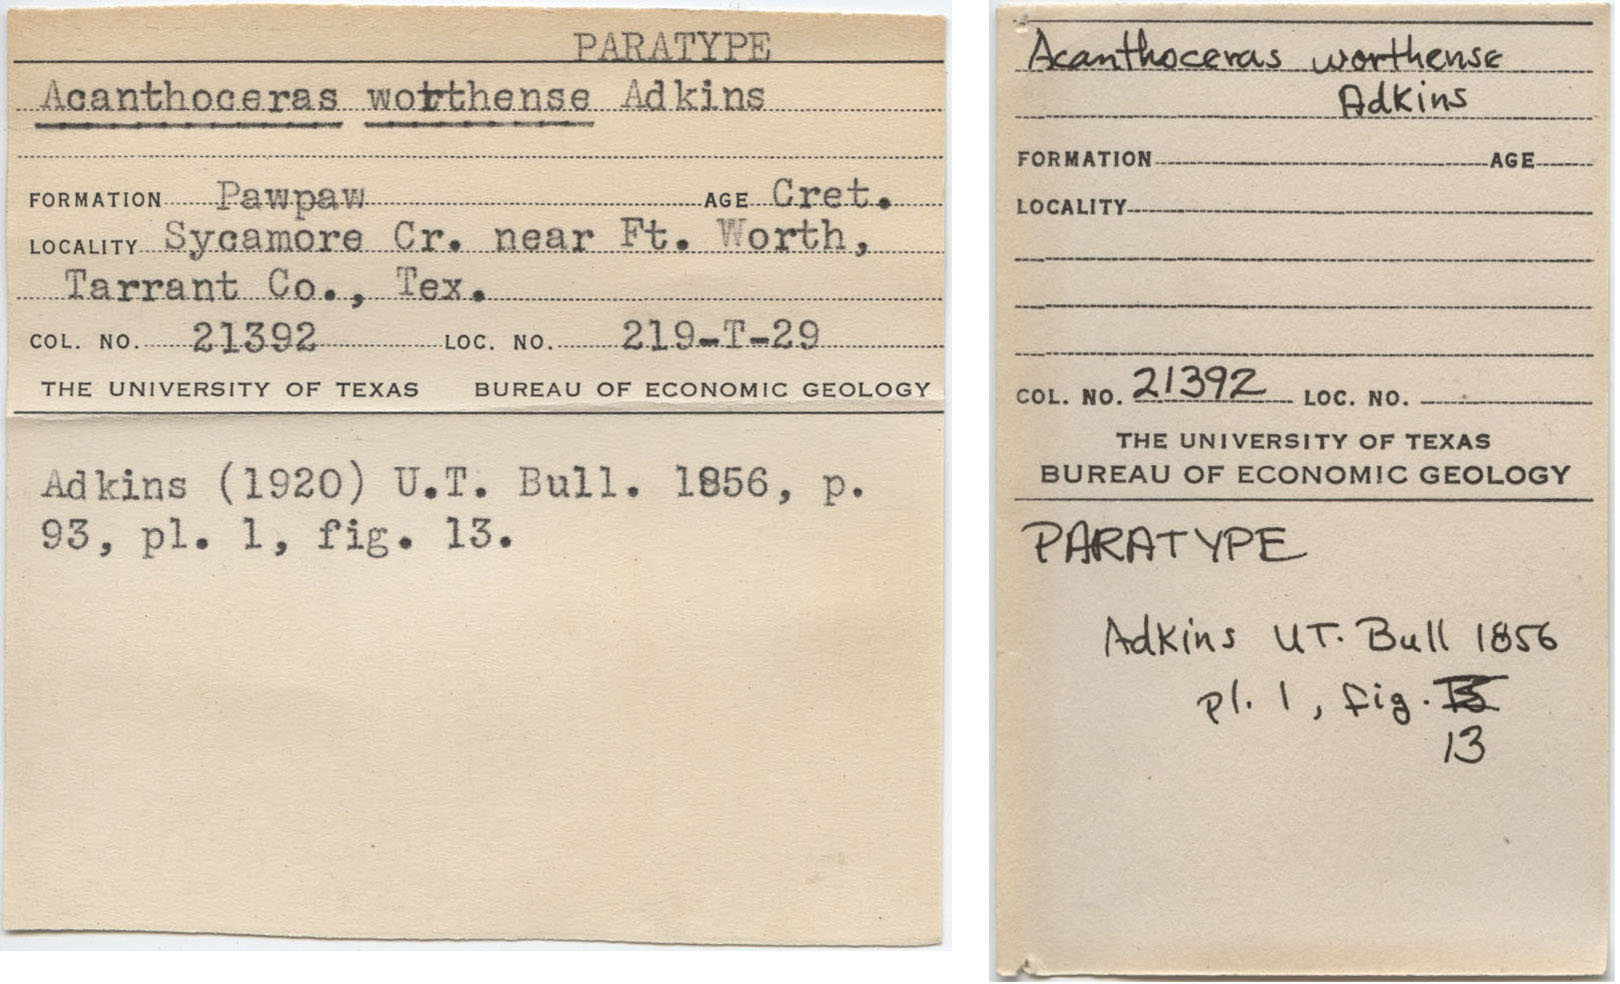 PARATYPE
Acanthoceras worthense Adkins
FORMATION Pawpaw AGE Cret.
LOCALITY Sycamore Cr. near Ft. Worth,
Tarrant Co., Tex.
COL. NO. 21392 LOC. NO. 219-T-29
THE UNIVERSITY OF TEXAS BUREAU OF ECONOMIC GEOLOGY
Adkins (1920) U.T. Bull. 1856, p.
93, pl. 1, fig. 13.
Acanthoceras worthense
Adkins
FORMATION AGE
LOCALITY
COL. NO. 21392 LOC. NO.
THE UNIVERSITY OF TEXAS
BUREAU OF ECONOMIC GEOLOGY
PARATYPE
Adkins UT. Bull 1856
pl. 1, fig.
13